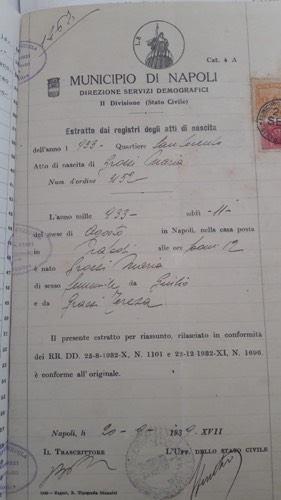 LA
Cat. 4 A
MUNICIPIO DI NAPOLI
DIREZIONE SERVIZI DEMOGRAFICI
II Divisione (Stato Civile)
Estratto dai registri degli atti di nascita
dell'anno 1933 Quartiere San Lorenzo
Atto di nascita di Grossi Maria
Num. d'ordine 452
L'anno mille 933 addì -11-
del mese di Agosto in Napoli, nella casa posta
in alle ore
è nato Grossi Maria
di sesso femminile da Giulio
e da Grassi Teresa
Il presente estratto per riassunto, rilasciato in conformità
dei RR. DD. 25-8-1932-X, N. 1101 e 22-12-1932-XI, N. 1696,
è conforme all'originale.
Napoli, lì 20-9-1939 XVII
IL TRASCRITTORE L'UFF. DELLO STATO CIVILE